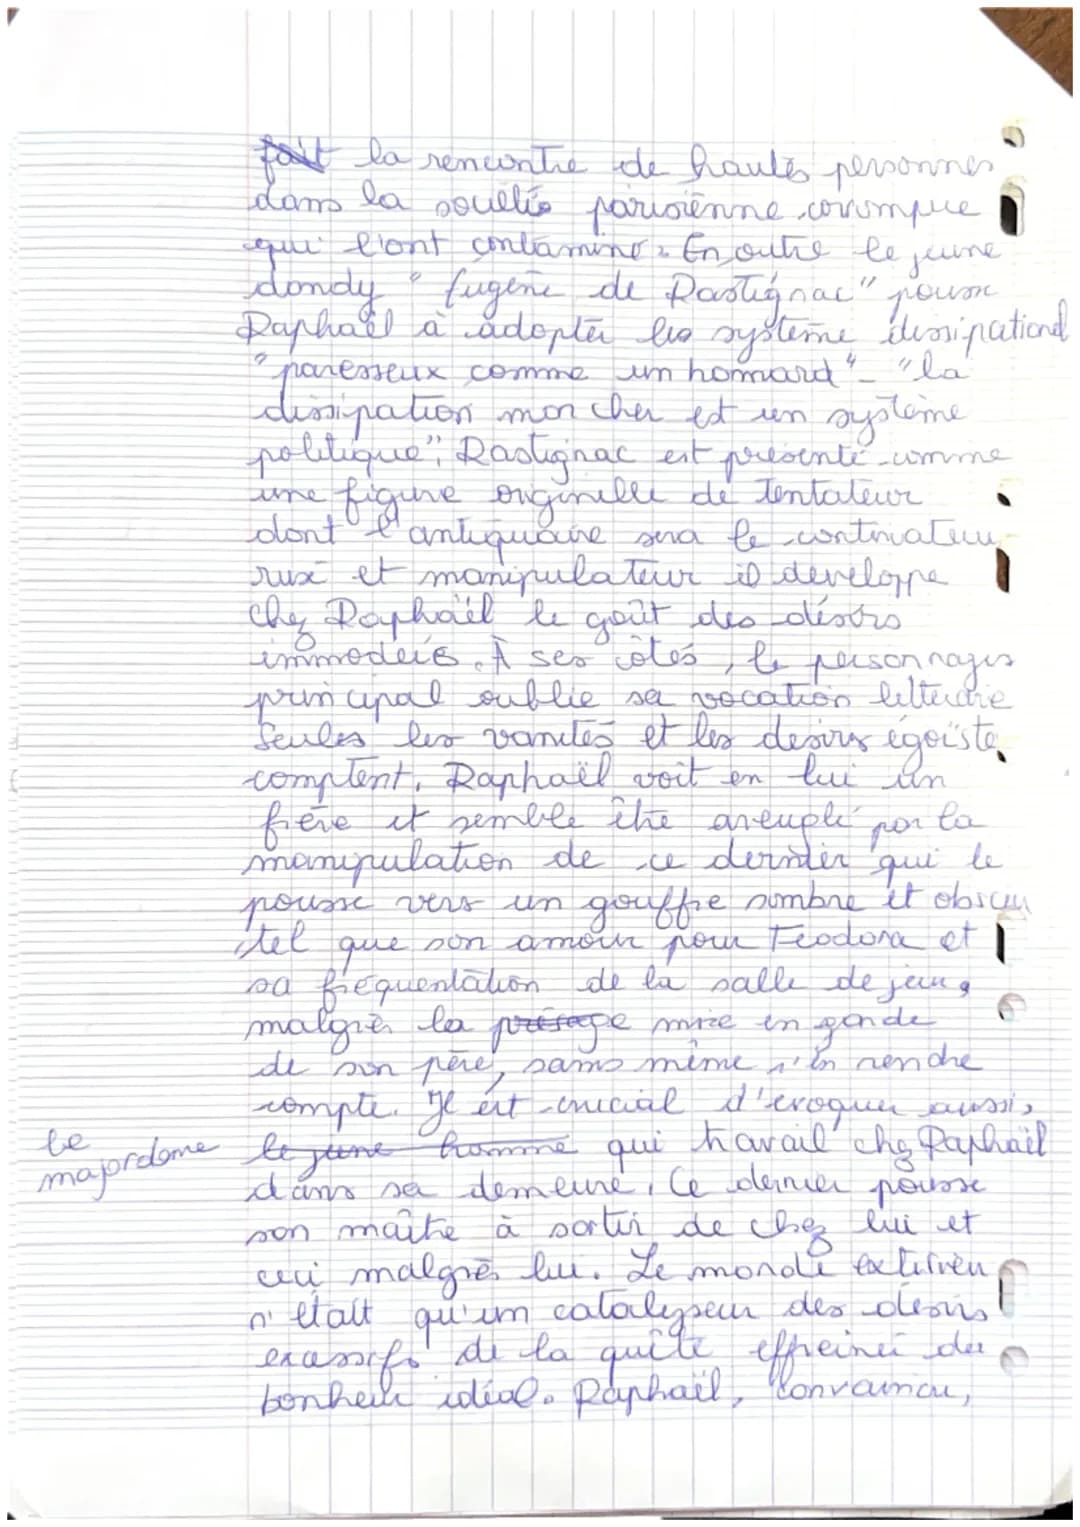 fait la rencontre de hautes personnes
dans la société parisienne corrompue
qui l'ont contaminé. En outre le jeune
dandy "Eugène de Rastignac" pousse
Raphaël à adopter les système dissipationel
"paresseux comme un homard" _ "la
dissipation mon cher est un système
politique"; Rastignac est présenté comme
une figure originelle de tentateur
dont l'antiquaire sera le continuateur
rusé et manipulateur il développe
chez Raphaël le goût des désirs
immodérés. À ses côtés, le personnages
principal oublie sa vocation littéraire
Seules les vanités et les désirs égoïste
comptent. Raphaël voit en lui un
frère et semble être aveuglé par la
manipulation de ce dernier qui le
pousse vers un gouffre sombre et obscur
tel que son amour pour Feodora et
sa fréquentation de la salle de jeux,
malgrès la présage mize en garde
de son père, sans même s'en rendre
compte. Il est crucial d'évoquer aussi,
le majordome
le jeune homme qui travail chez Raphaël
dans sa demeure. Ce dernier pousse
son maître à sortir de chez lui et
ceci malgrès lui. Le monde extérieur
n'était qu'un catalyseur des désirs
excessifs de la quête effreinée du
bonheur idéal. Raphaël, convaincu,